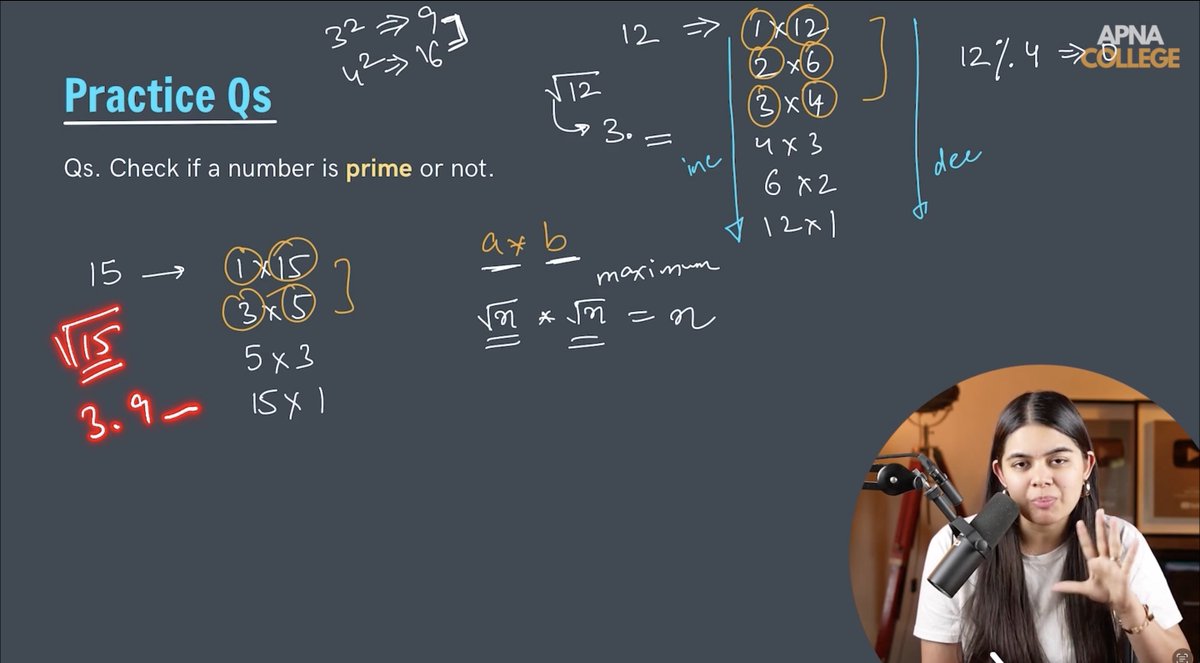 3² ⇒ 9
4² ⇒ 16
12 ⇒ 1 x 12
2 x 6
3 x 4
4 x 3
6 x 2
12 x 1
inc
dec
√12
3.
12 % 4 ⇒ 0
APNA
COLLEGE
Practice Qs
Qs. Check if a number is prime or not.
15 → 1 x 15
3 x 5
5 x 3
15 x 1
√15
3.9
a * b
maximum
√n * √n = n